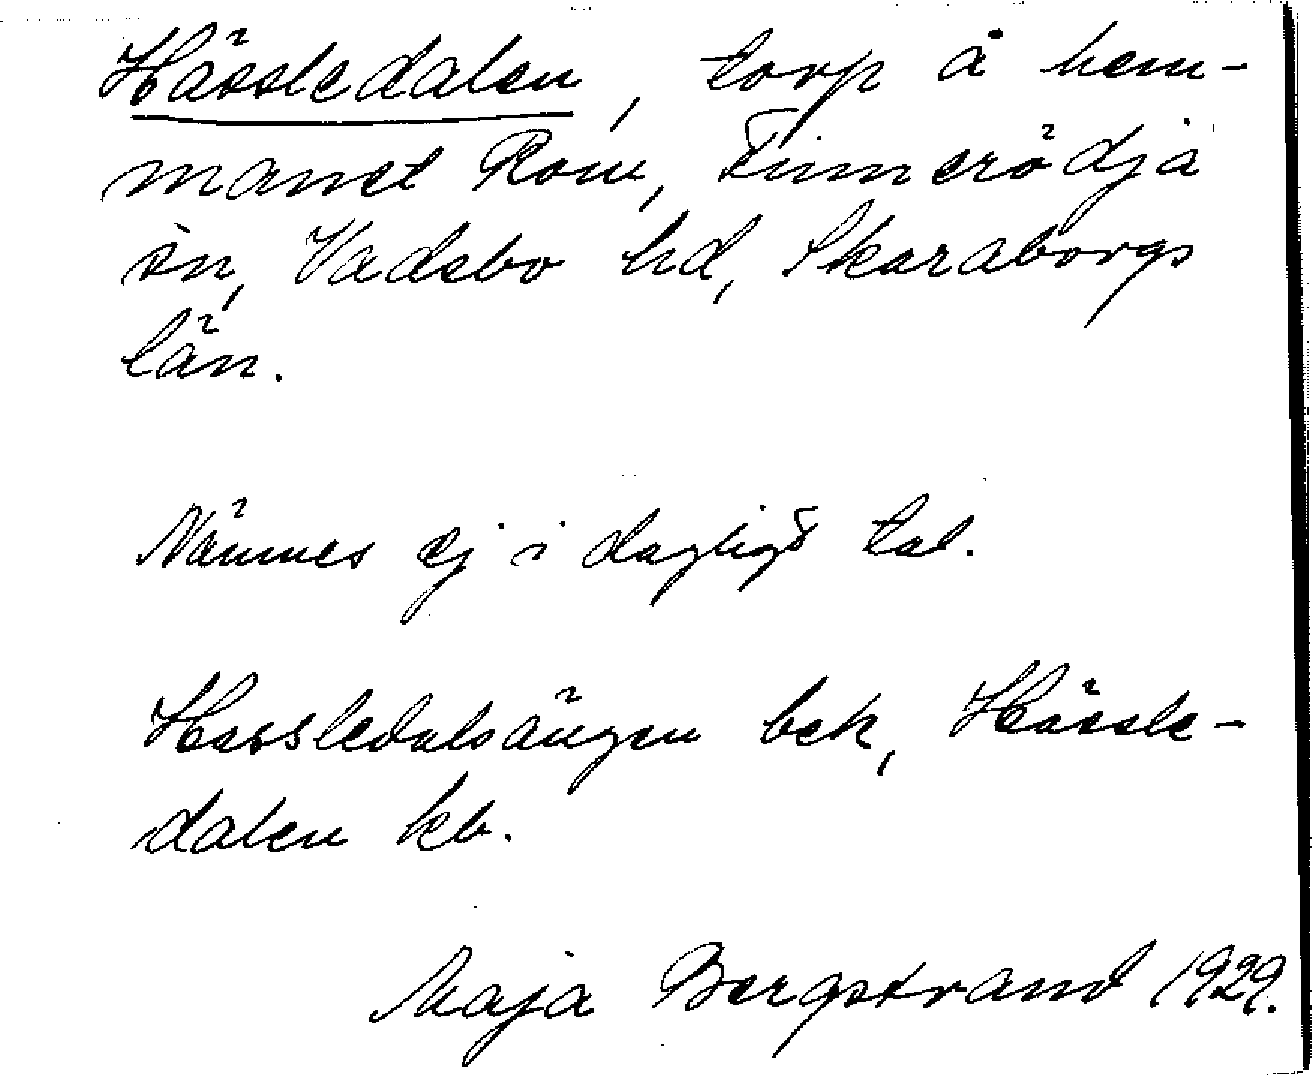 Hässledalen, torp å hem-
manet Rom, Finnerödja
sn, Vadsbo hd, Skaraborgs
län.
Nämnes ej i dagligt tal.
Hassledalsängen bek, Hässle-
dalen kb.
Maja Bergstrand 1929.